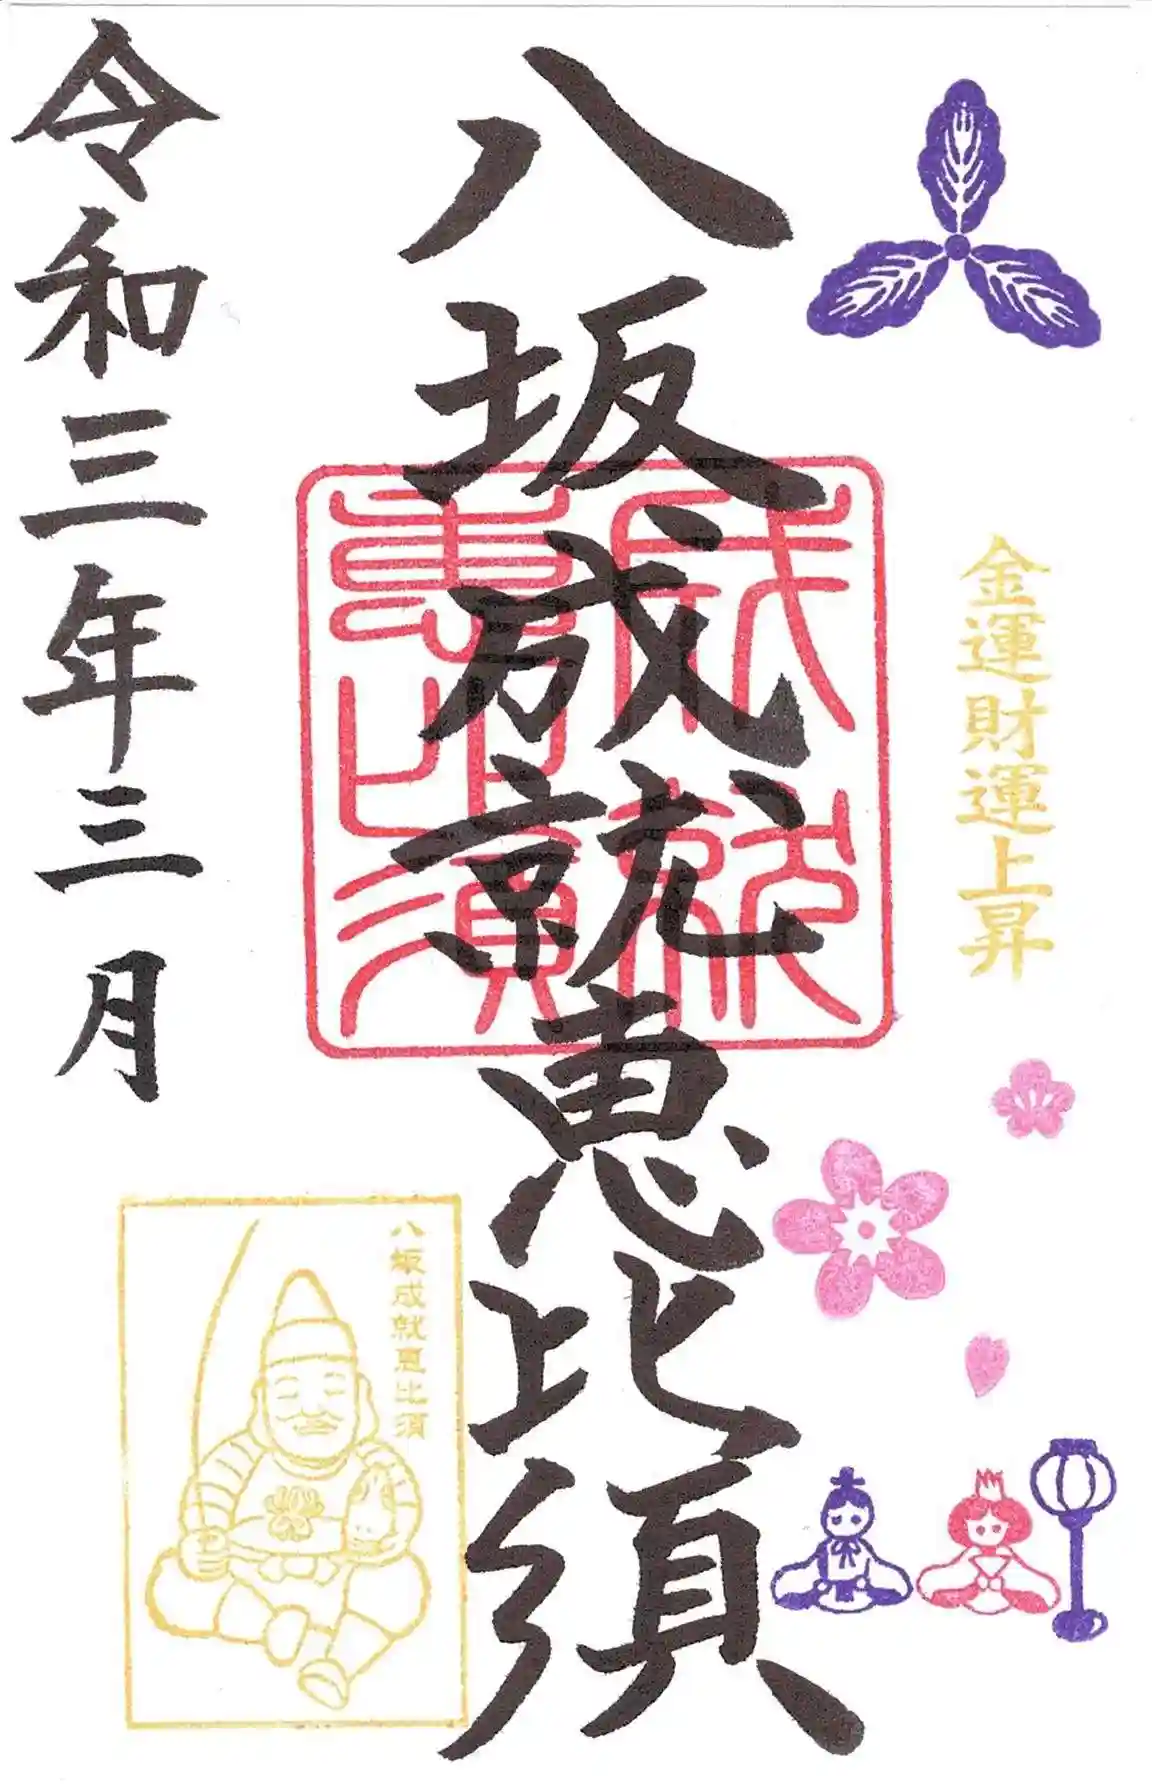 金運財運上昇
八坂成就恵比須
成就
恵比須
令和三年三月
八坂成就恵比須